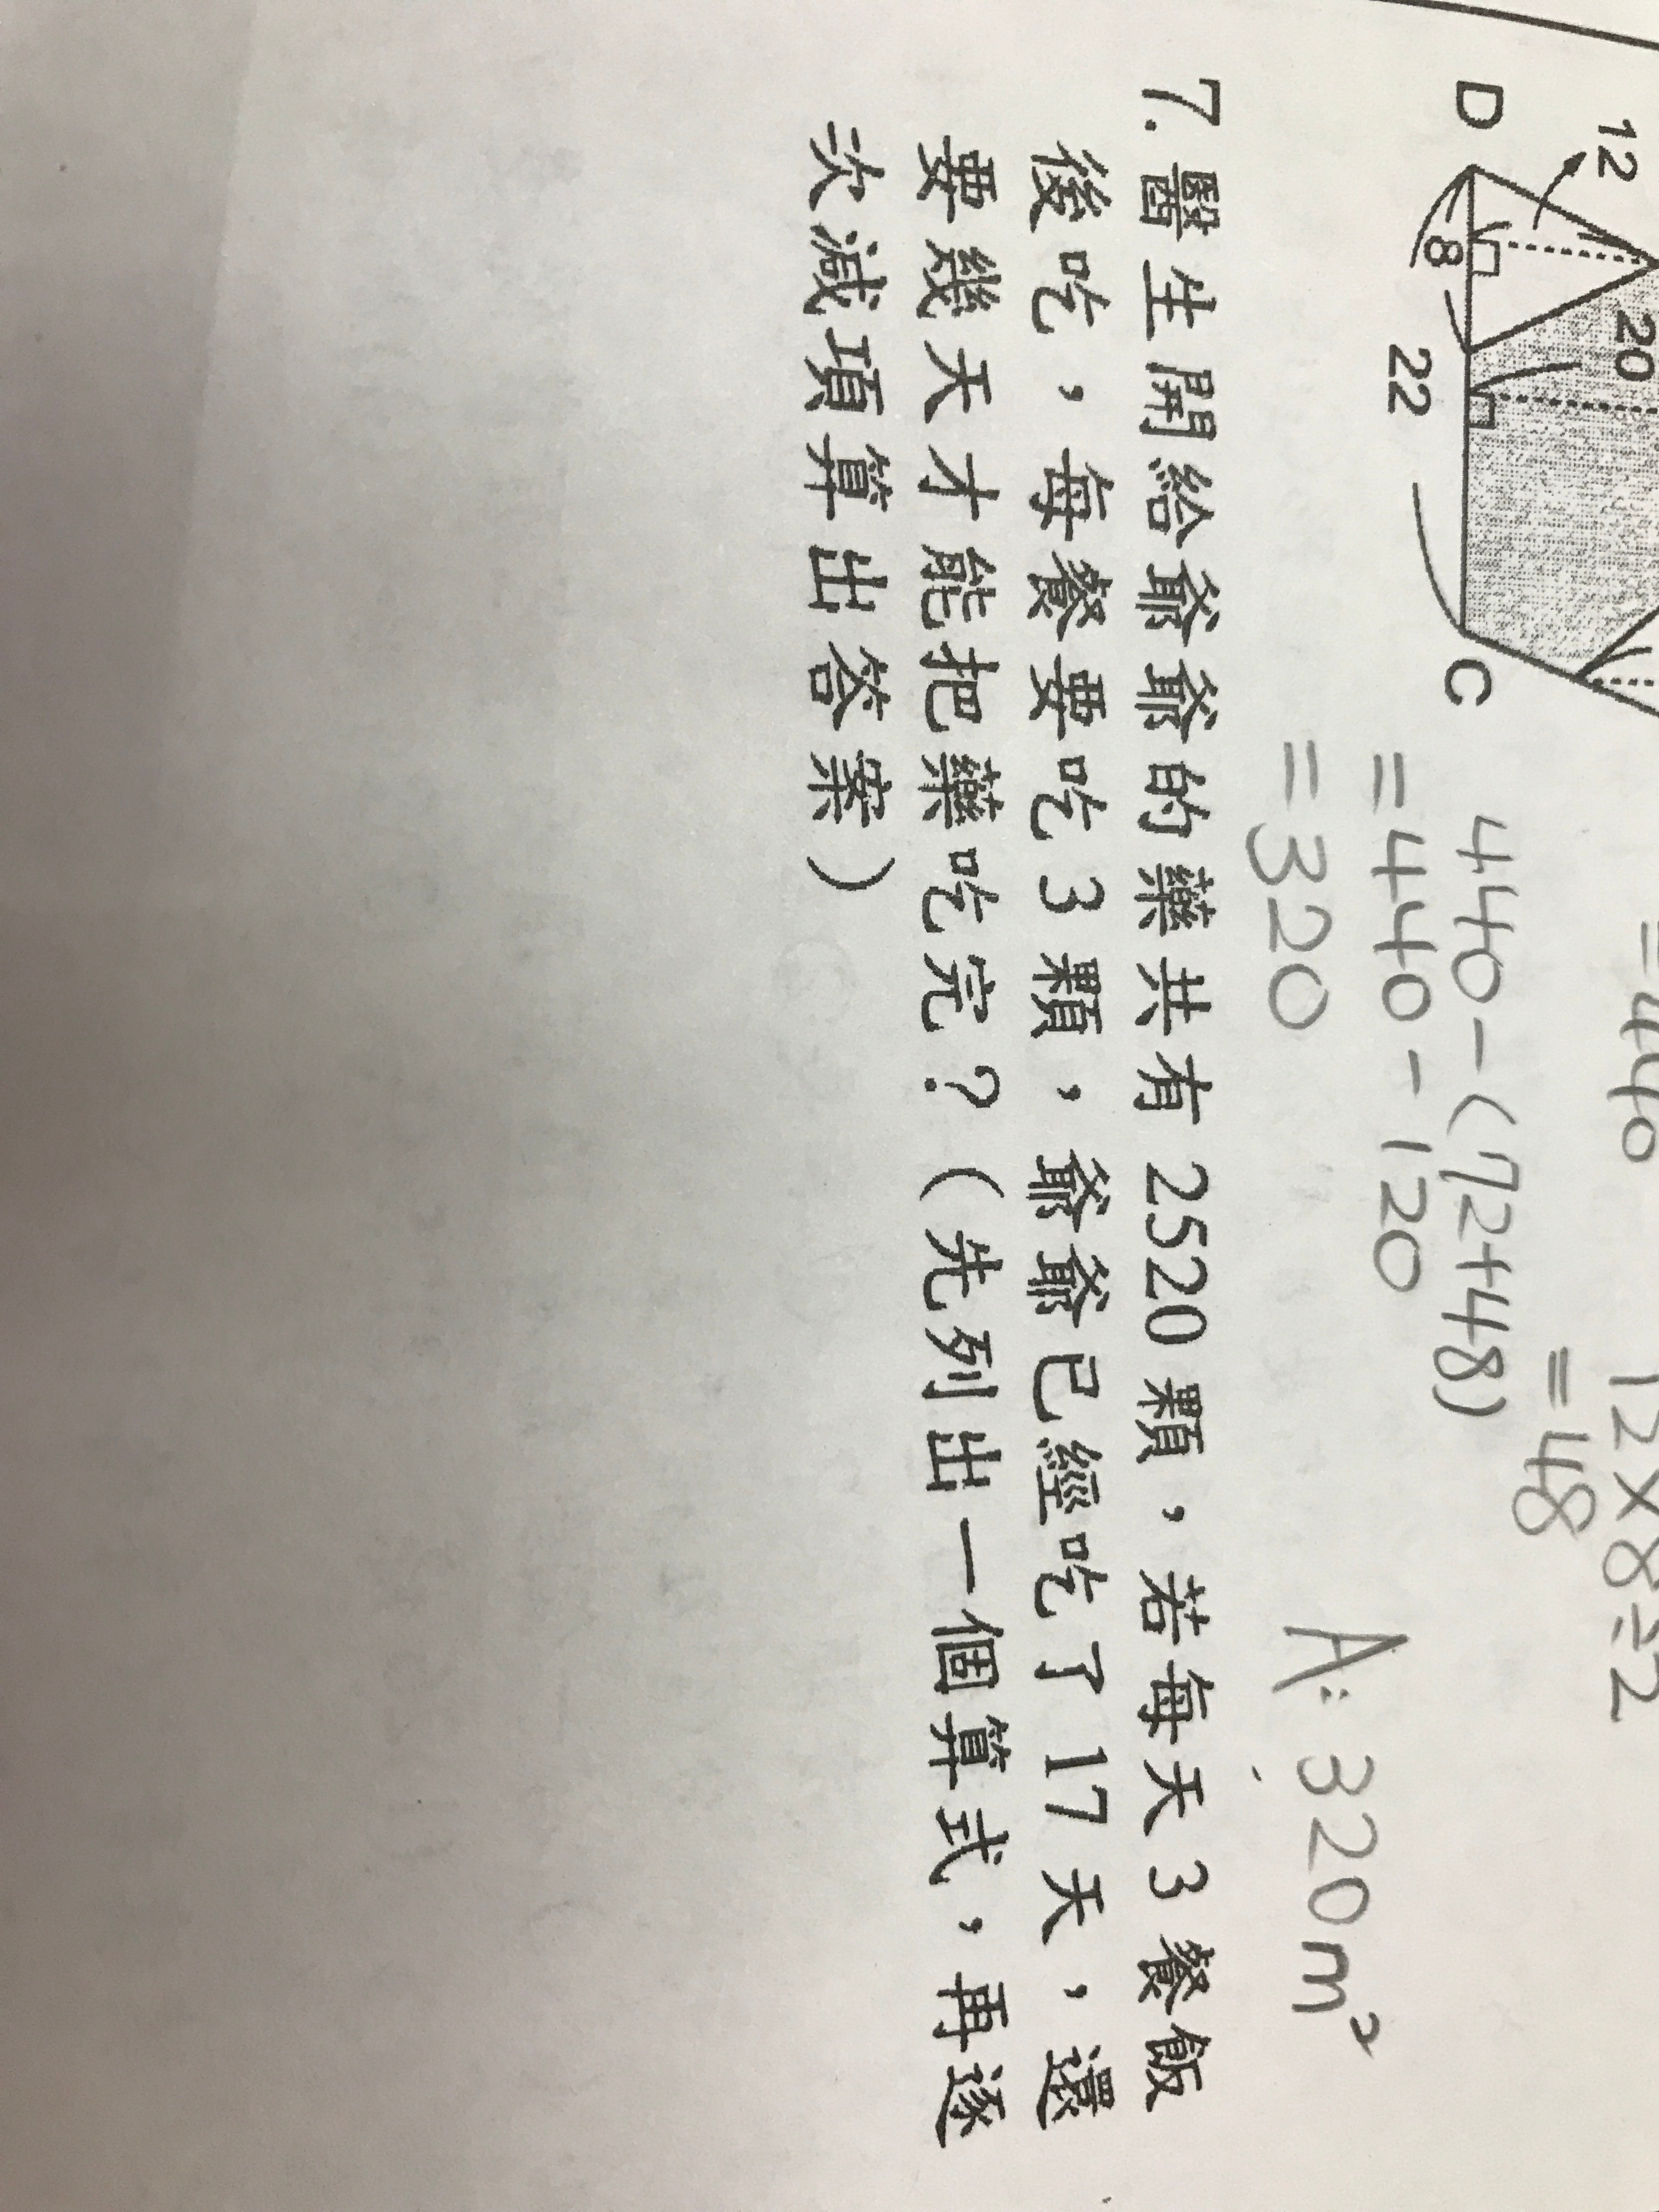 12
20
D
8
22
C
=440
12×8÷2
=48
440-(72+48)
=440-120
=320
A: 320m²
7.醫生開給爺爺的藥共有 2520 顆，若每天 3 餐飯
後吃，每餐要吃 3 顆，爺爺已經吃了 17 天，還
要幾天才能把藥吃完？（先列出一個算式，再逐
次減項算出答案）